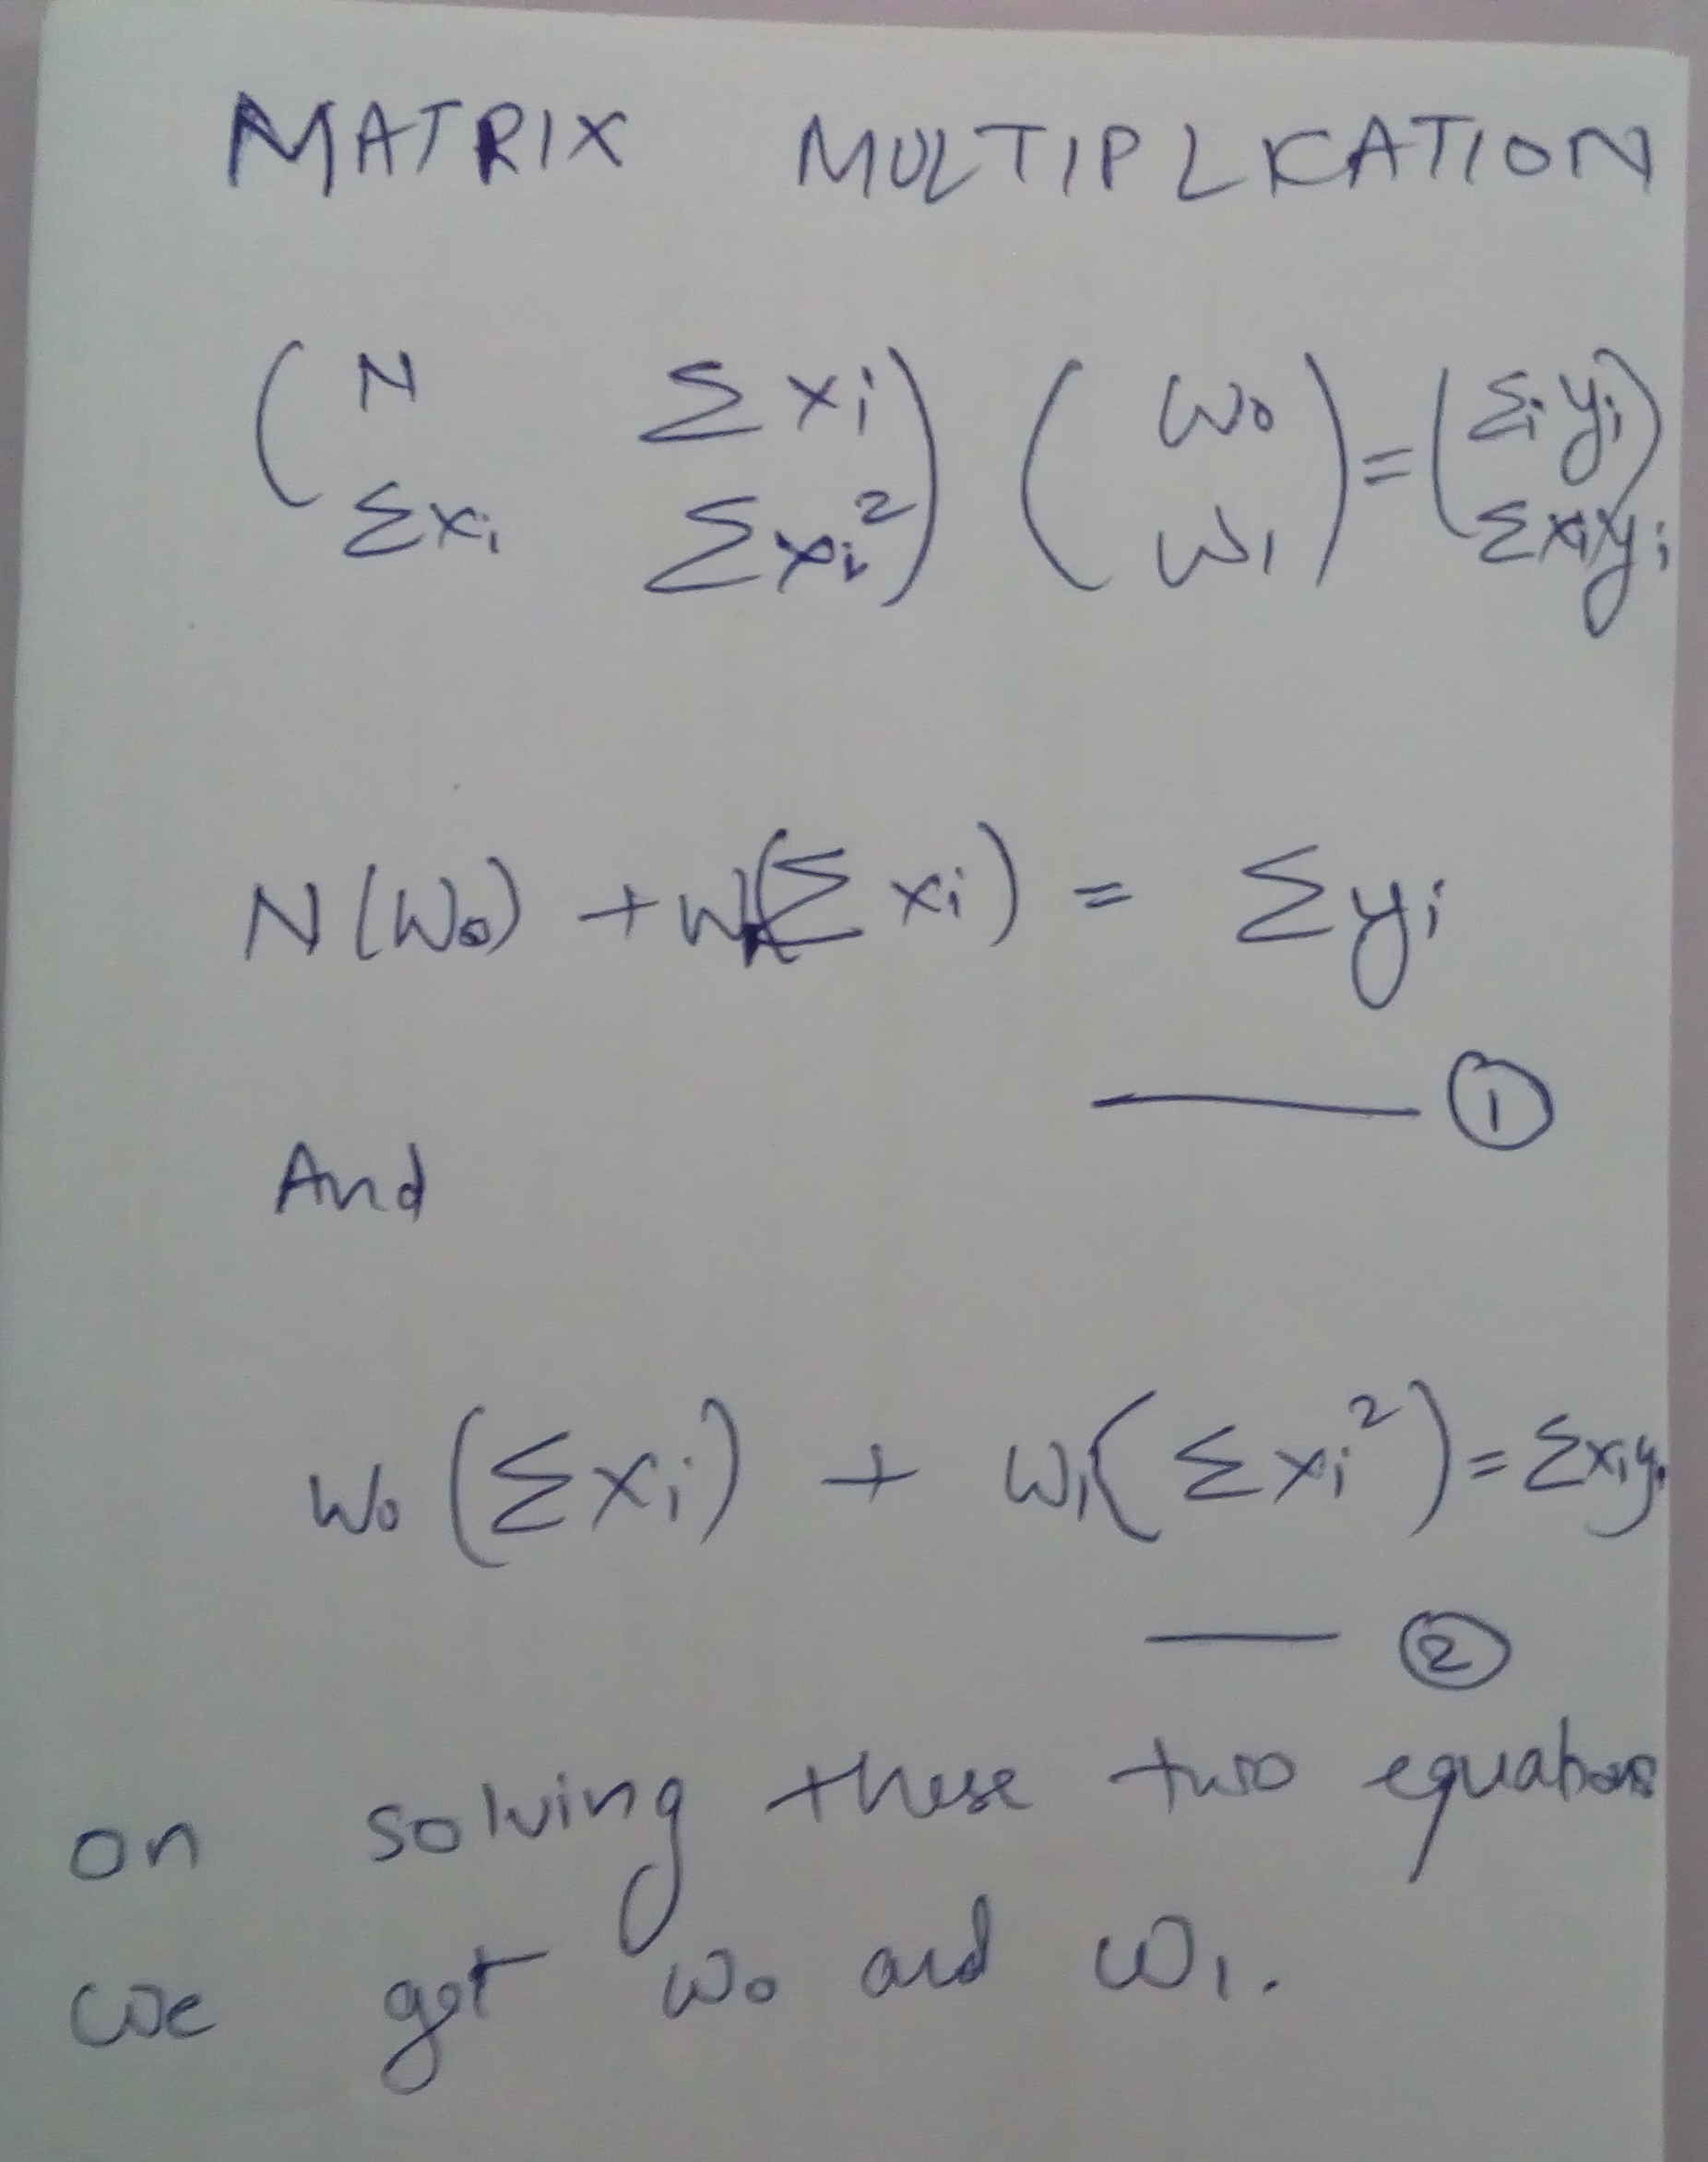 MATRIX MULTIPLICATION
( N Σxi ) ( W0 ) = ( Σi yi )
( Σxi Σxi² ) ( W1 ) ( Σxiyi )
N(W0) + W1(Σxi) = Σyi
—— ①
And
W0 (Σxi) + W1(Σxi²) = Σxiyi
— ②
on solving these two equations
we get W0 and W1.